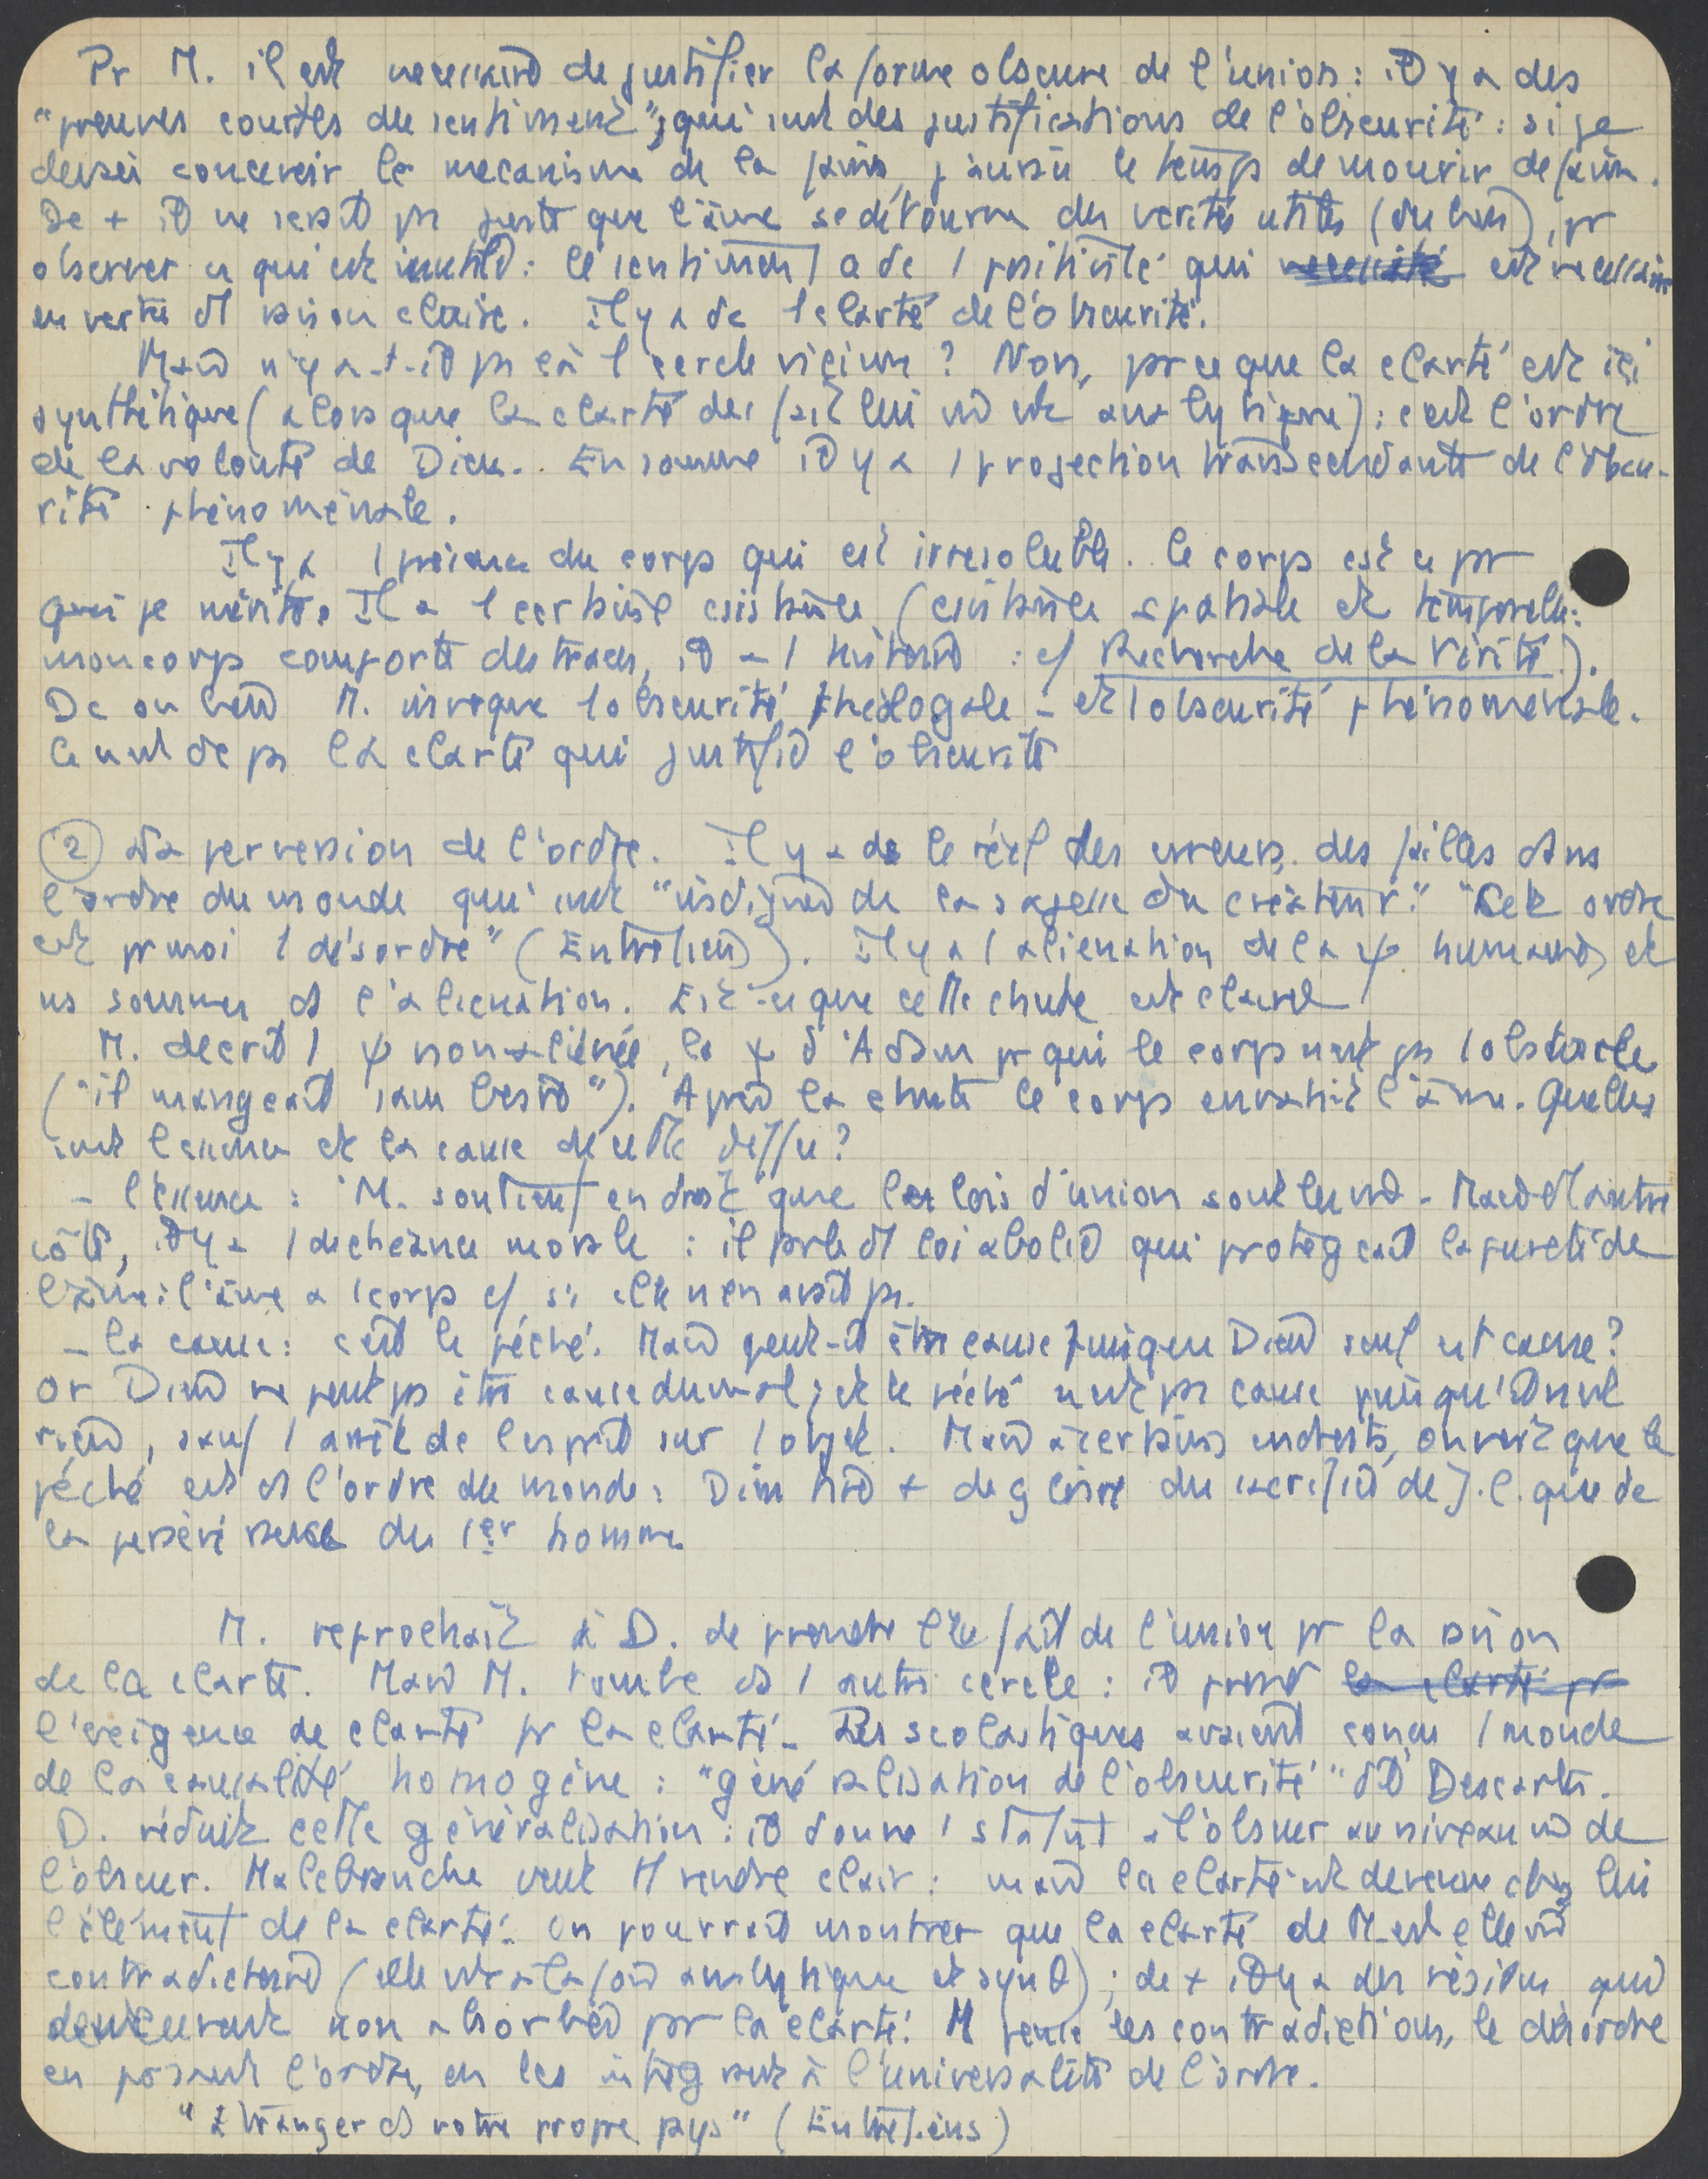 Pr M. il est necessaire de justifier la forme obscure de l'union : il y a des
"preuves courtes du sentiment", qui sont des justifications de l'obscurité : si je
devais concevoir le mecanisme de la faim, j'aurais le temps de mourir de faim.
De + il ne serait ps juste que l'âme se détourne des verités utiles ( ), pr
observer ce qui est inutile : le sentiment a dc 1 positivité qui est necessaire
en vertu d'1 raison claire. Il y a dc 1 clarté de l'obscurité.
Mais n'y a-t-il ps là 1 cercle vicieux ? Non, parce que la clarté est ici
synthétique (alors que la clarté des faits lui est analytique) : c'est l'ordre
de la volonté de Dieu. En somme il y a 1 projection transcendante de l'obscu-
rité phénoménale.
Il y a 1 présence du corps qui est irresoluble. Le corps est ce pr
quoi je mérite. Il a 1 certaine existence (existence spatiale et temporelle :
mon corps comporte des traces, il a 1 histoire : cf Recherche de la Vérité).
Dc ou bien M. invoque 1 obscurité théologale - et 1 obscurité phénomenale.
Ce n'est dc ps la clarté qui justifie l'obscurité
② La perversion de l'ordre. Il y a ds le réel des erreurs, des failles dans
l'ordre du monde qui sont "indignes de la sagesse du créateur." "Cet ordre
est pr moi 1 désordre" (Entretiens). Il y a 1 alienation de la ψ humaine, et
ns sommes ds l'alienation. Est-ce que cette chute est claire
M. decrit 1 ψ non-aliénée, la ψ d'Adam pr qui le corps n'est ps 1 obstacle
("il mangeait sans besoin"). Après la chute le corps envahit l'âme. Quelles
sont l'essence et la cause de cette diffce ?
- l'essence : M. soutient en droit que les lois d'union sont les mêmes - Mais d'1 autre
côté, il y a 1 decheance morale : il parle d'1 loi abolie qui protegeait la pureté de
l'âme : l'âme a 1 corps cf si elle n'en avait ps.
- la cause : c'est le péché. Mais peut-il être cause puisque Dieu seul est cause ?
Or Dieu ne peut ps être cause du mal ; et le péché n'est ps cause puisqu'il n'est
rien, sauf 1 arrêt de l'esprit sur 1 objet. Mais à certains endroits, on voit que le
péché est ds l'ordre du monde : Dieu tire + de gloire du sacrifice de J.C. que de
la persévérance du 1er homme
M. reprochait à D. de prendre l'être/fait de l'union pr la raison
de la clarté. Mais M. tombe ds 1 autre cercle : il prend la clarté pr
l'exigence de clarté pr la clarté - Les scolastiques avaient conçu 1 monde
de la causalité homogène : "généralisation de l'obscurité" dit Descartes.
D. réduit cette généralisation : il donne 1 statut à l'obscur au niveau même de
l'obscur. Malebranche veut tt rendre clair : mais la clarté est devenue chez lui
l'élément de la clarté. On pourrait montrer que la clarté de M. est elle même
contradictoire (elle est à la fois analytique et synth) ; de + il y a des résidus qui
demeurent non absorbés par la clarté. M pense les contradictions, le désordre
en posant l'ordre, en les intégrant à l'universalité de l'ordre.
"Etranger ds votre propre pays" (Entretiens)